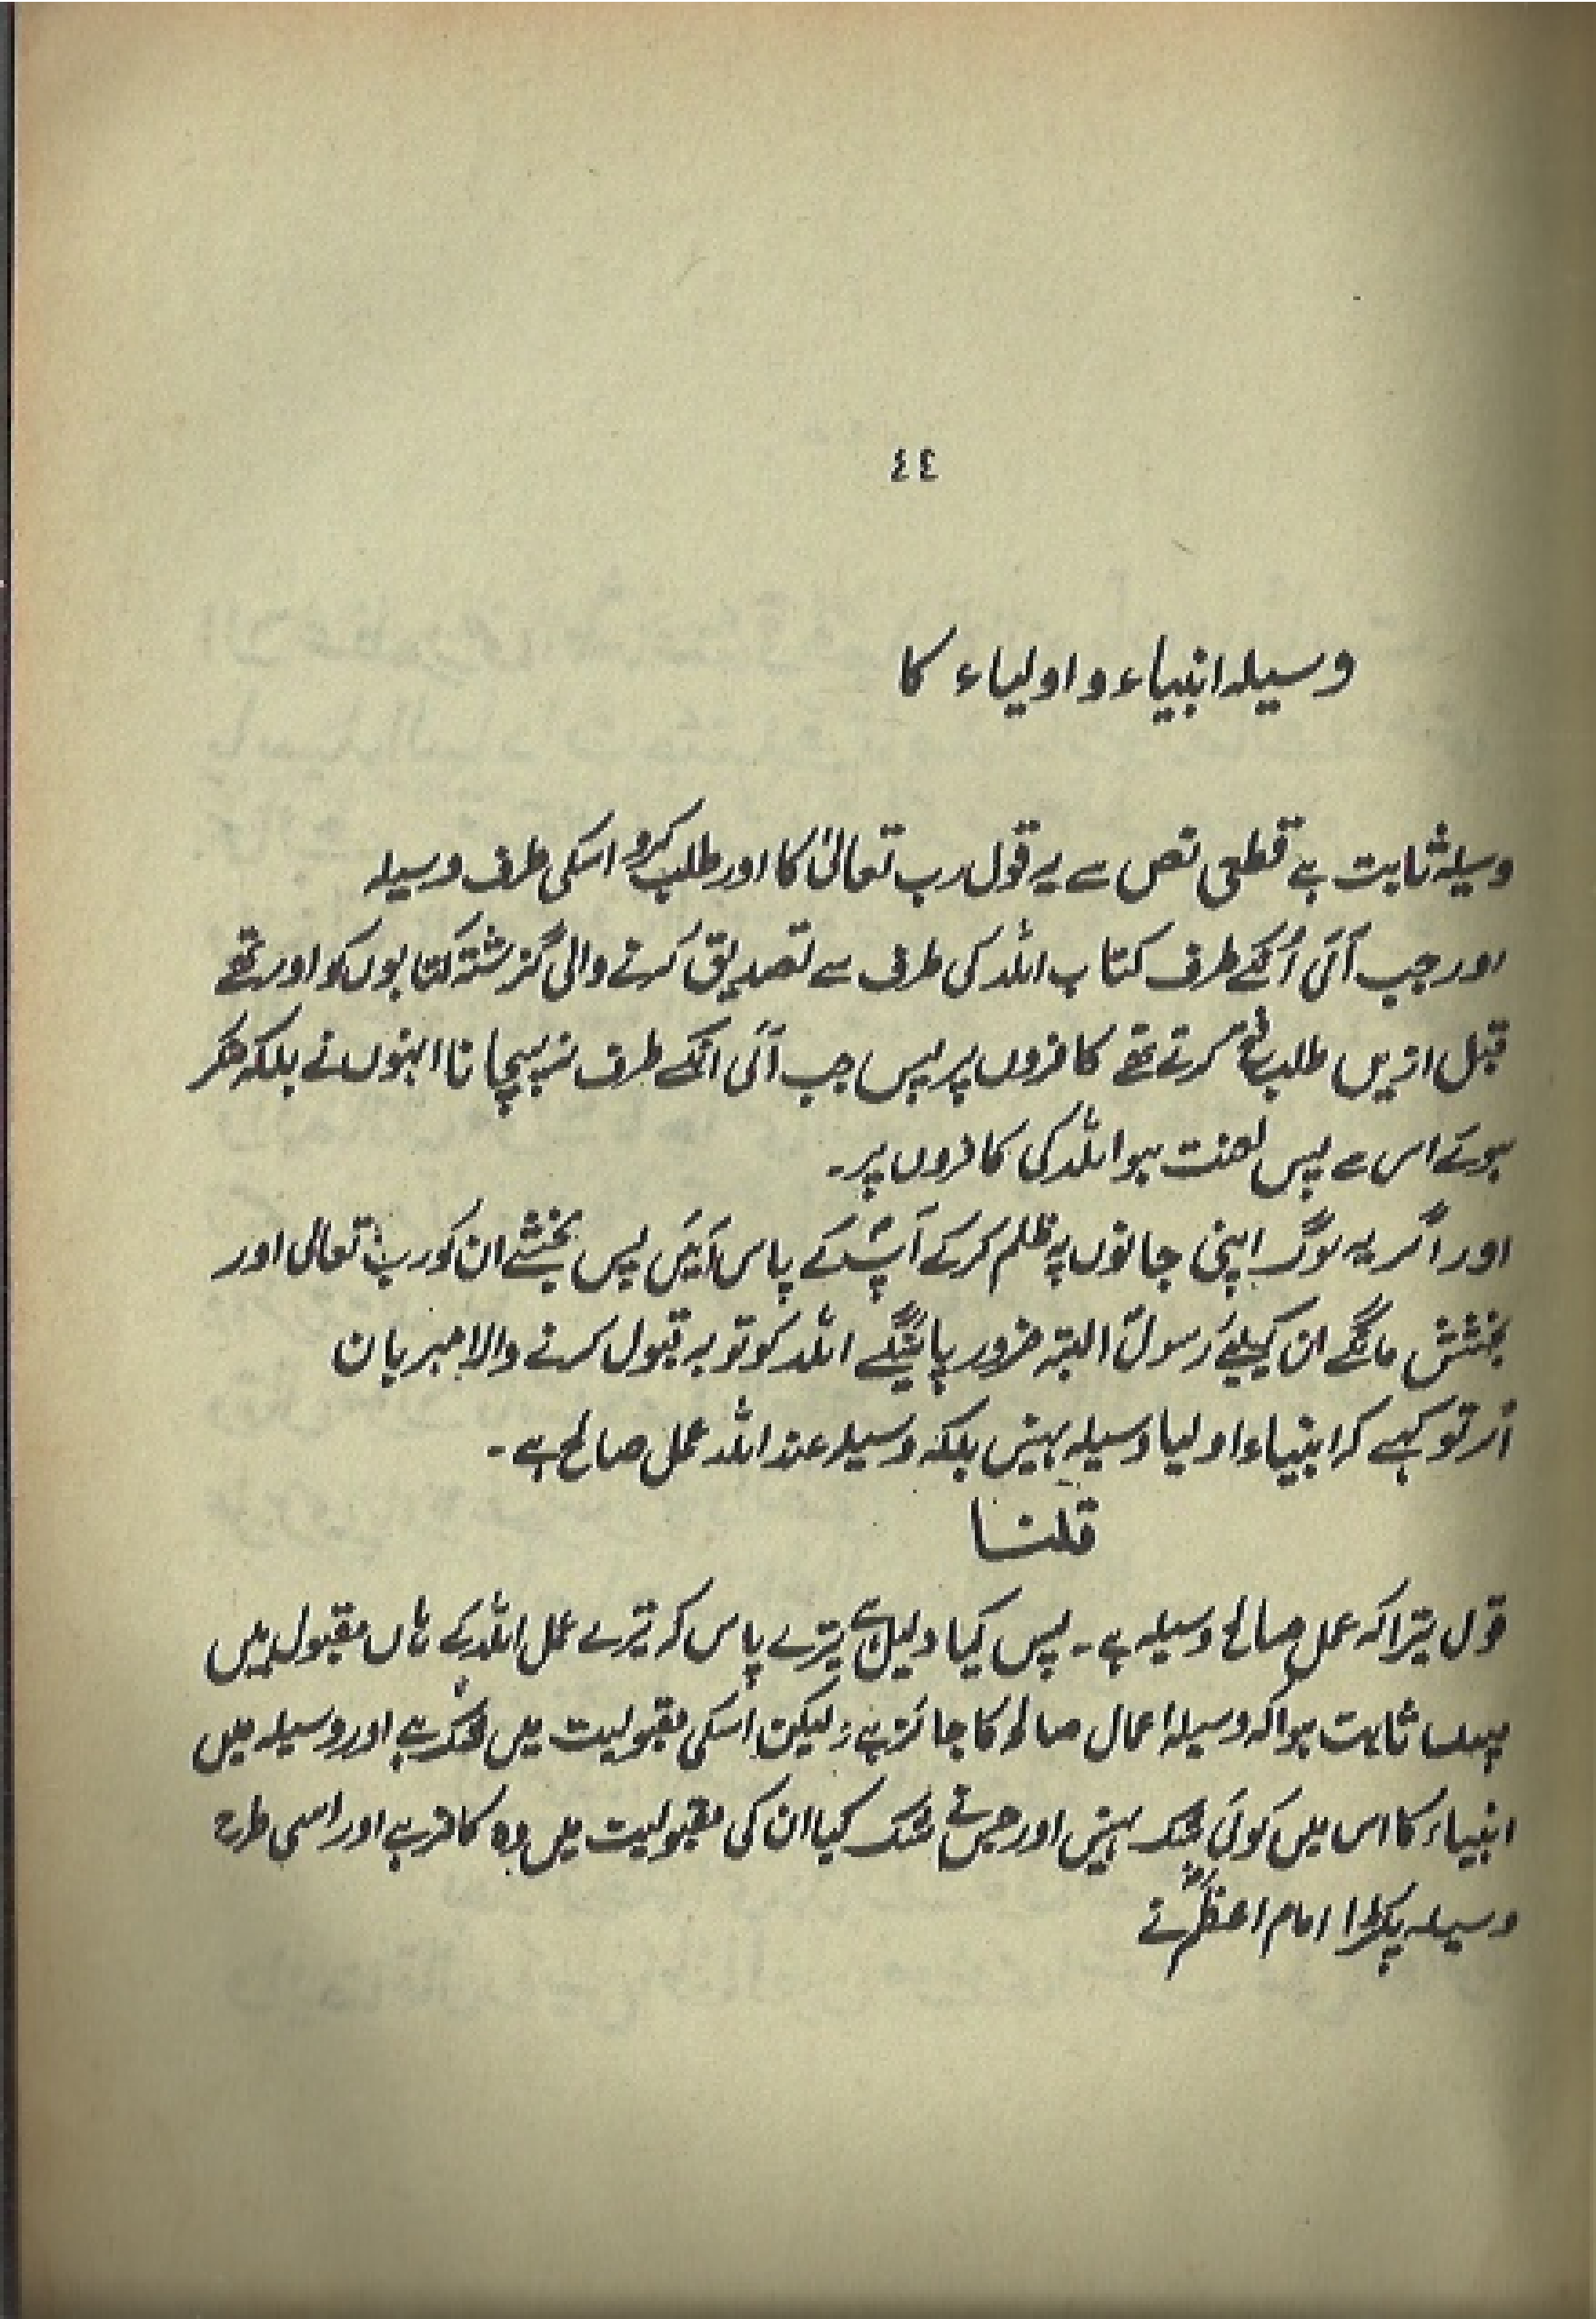 ٤٤
وسیلہ انبیاء و اولیاء کا
وسیلہ ثابت ہے قطعی نص سے یہ قول رب تعالیٰ کا اور طلب کرو اسکی طرف وسیلہ
اور جب آئی اُنکے طرف کتاب اللہ کی طرف سے تصدیق کرنے والی گزشتہ کتابوں کو اور تھے
قبل ازیں طلب فتح کرتے تھے کافروں پر پس جب آئی انکے طرف نہ پہچانا انہوں نے بلکہ منکر
ہوئے اس سے پس لعنت ہو اللہ کی کافروں پر۔
اور اگر یہ لوگ اپنی جانوں پہ ظلم کرکے آپؐ کے پاس آئیں پس بخشے ان کو رب تعالی اور
بخشش مانگے ان کیلئے رسولؐ البتہ ضرور پائینگے اللہ کو توبہ قبول کرنے والا مہربان
اگر تو کہے کہ انبیاء اولیا وسیلہ نہیں بلکہ وسیلہ عند اللہ عمل صالح ہے۔
قلنا
قول تیرا کہ عمل صالح وسیلہ ہے۔ پس کیا دلیل ہے تیرے پاس کہ تیرے عمل اللہ کے ہاں مقبول ہیں
پس ثابت ہوا کہ وسیلہ اعمال صالح کا جائز ہے لیکن اسکی مقبولیت میں شک ہے اور وسیلہ میں
انبیاء کا اس میں کوئی شک نہیں اور جس نے شک کیا ان کی مقبولیت میں وہ کافر ہے اور اسی طرح
وسیلہ پکڑا امام اعظمؒ نے